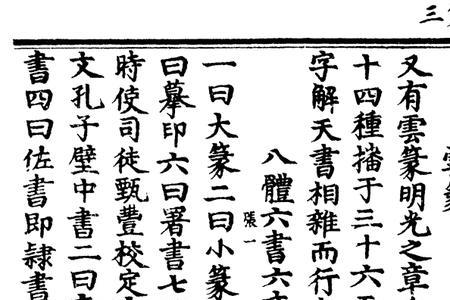 三
又有雲篆明光之章
十四種播于三十六
字解天書相雜而行
八體六書六
張一
一曰大篆二曰小篆
曰摹印六曰署書七
時使司徒甄豐校定
文孔子壁中書二曰
書四曰佐書即隸書